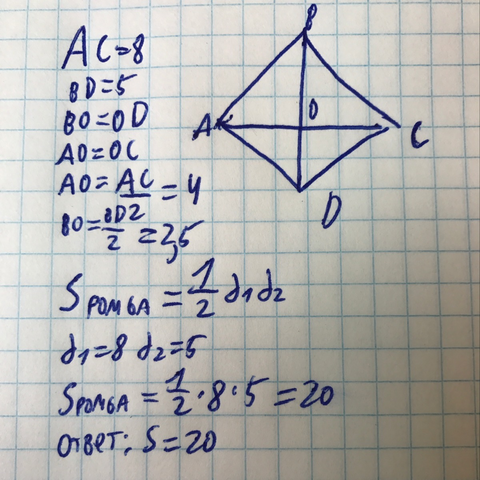 AC=8
BD=5
BO=OD
AO=OC
AO=AC/2=4
BO=BD/2=2,5
B
A
O
C
D
Sромба=1/2 d1d2
d1=8 d2=5
Sромба=1/2·8·5=20
ответ: S=20